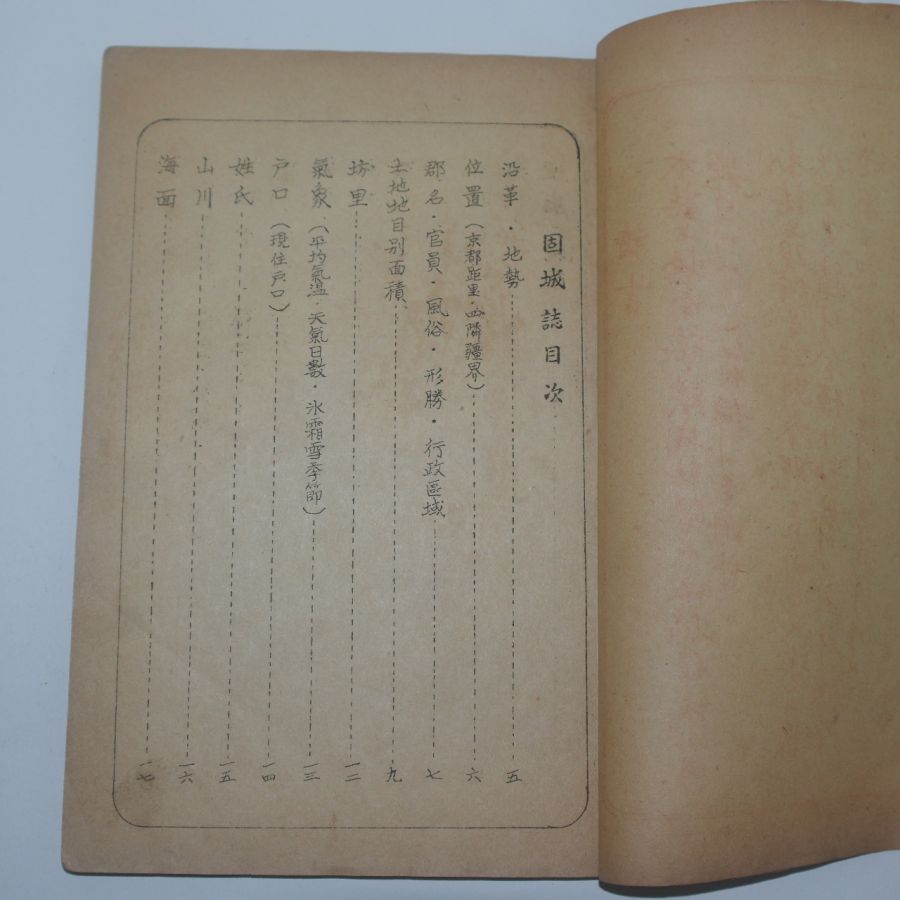 固城誌目次
沿革・地勢 五
位置（京都距里・四隣疆界） 六
郡名・官員・風俗・形勝・行政區域 七
土地地目別面積 九
坊里 一二
氣象（平均氣温・天氣日數・氷霜雪季節） 一三
戸口（現住戸口） 一四
姓氏 一五
山川 一六
海面 一七